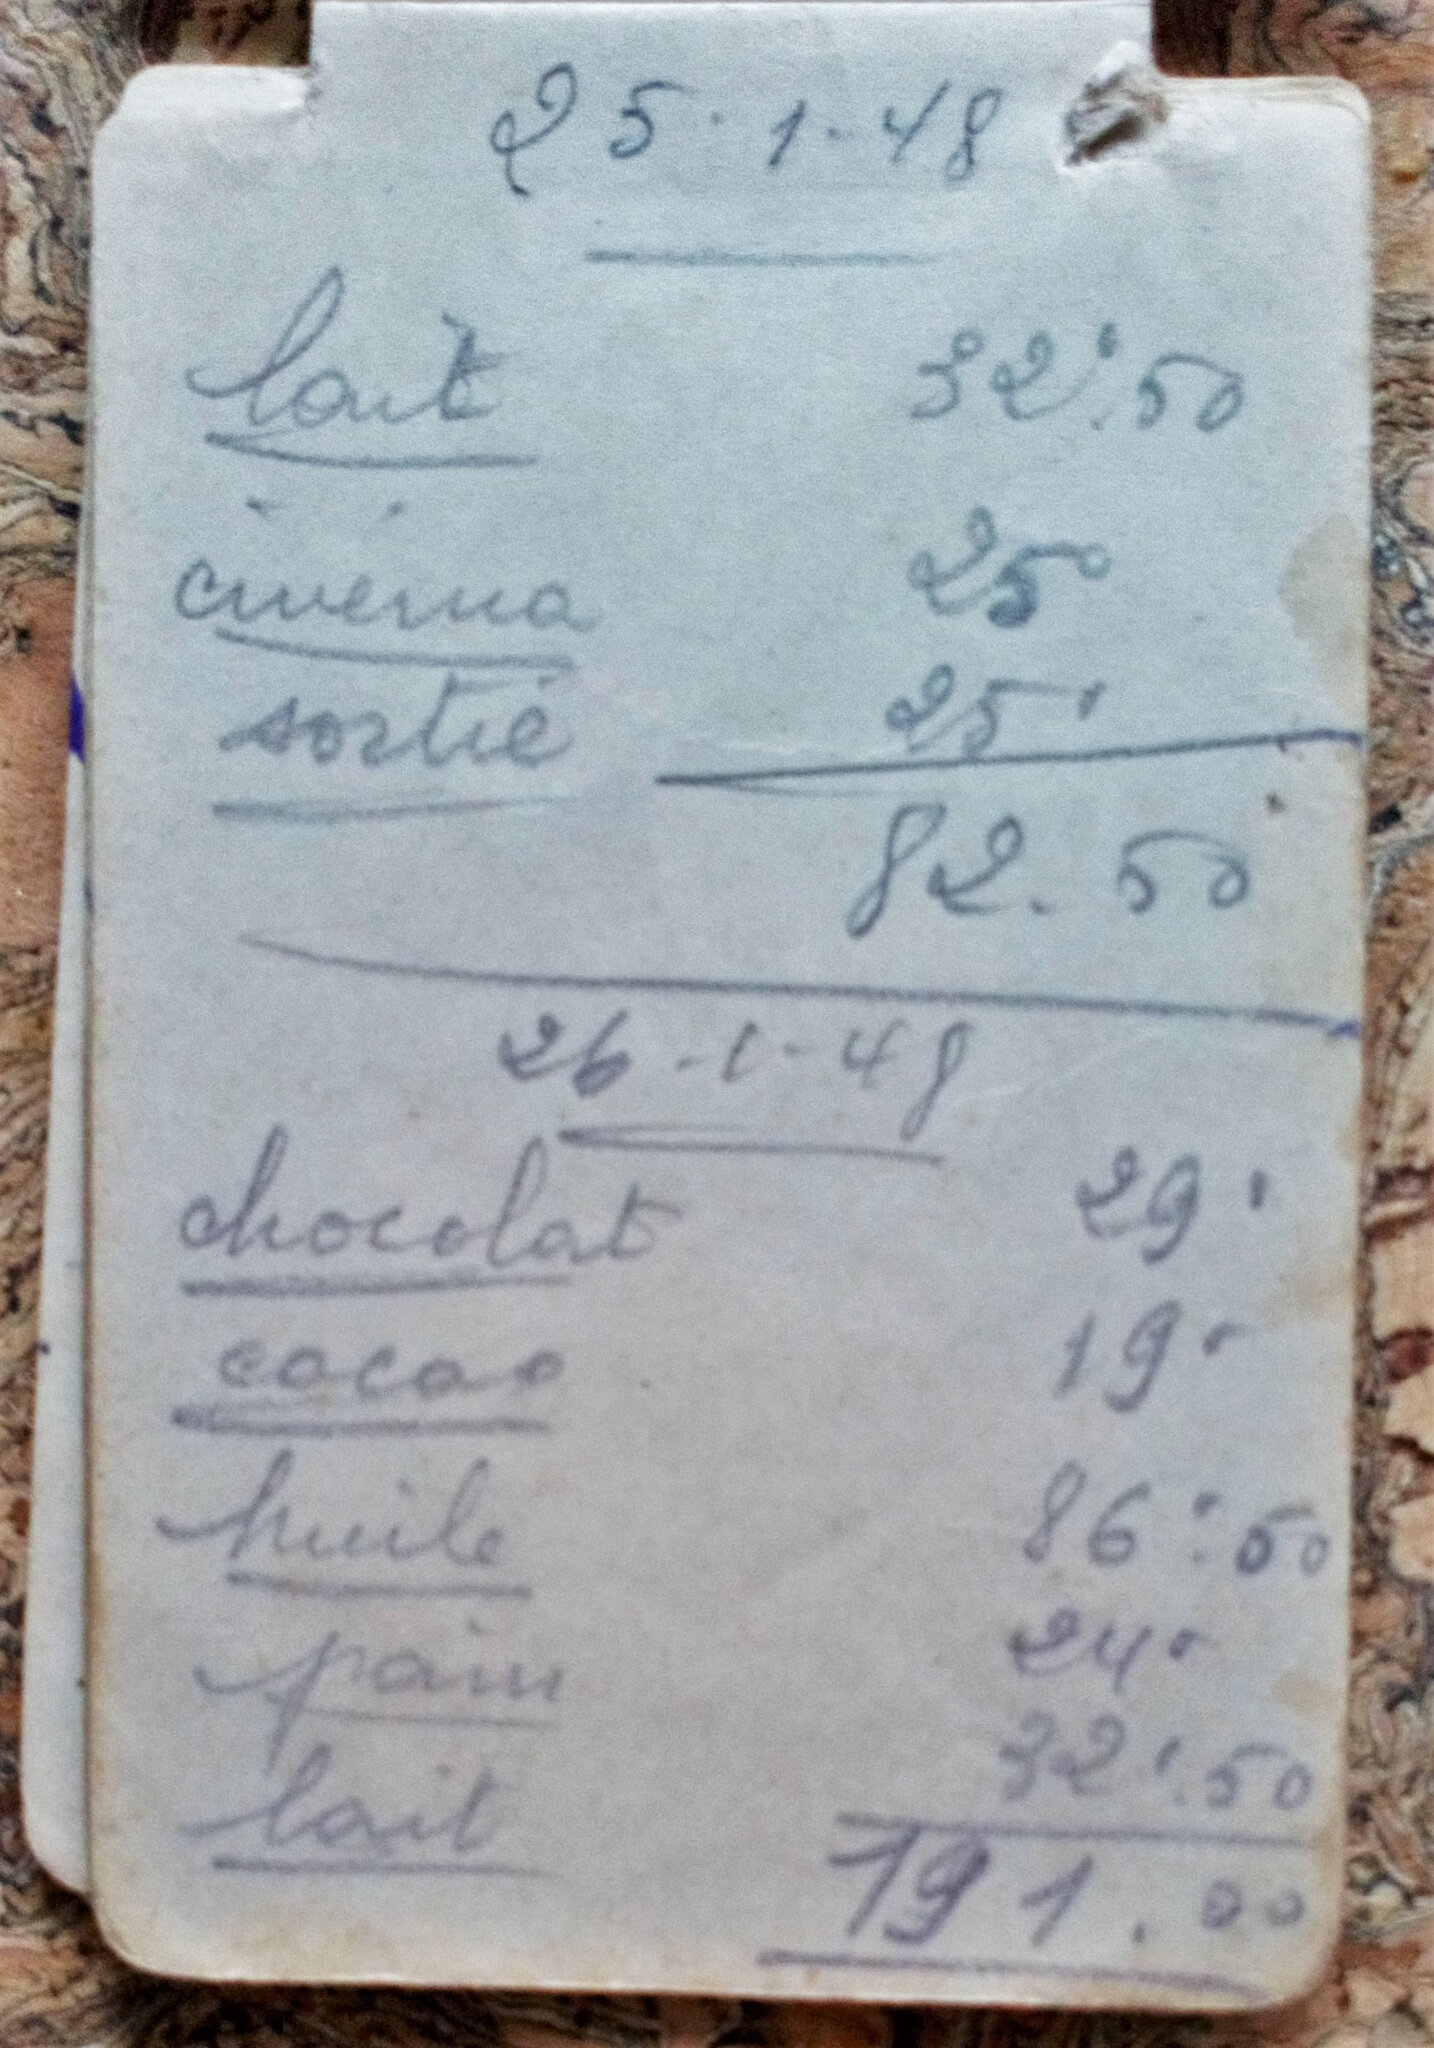 25.1.48
lait 32'.50
cinéma 25'
sortie 25'
82.50
26-1-48
chocolat 29'
cacao 19'
huile 86'.50
pain 24'
lait 32'.50
191.00